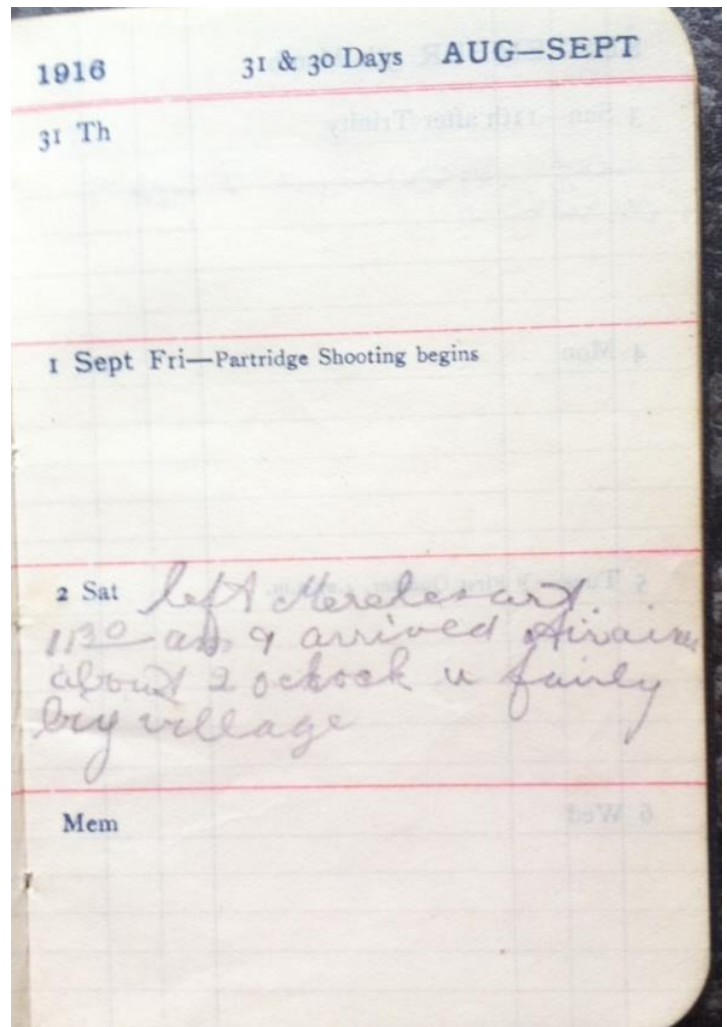 1916 31 & 30 Days AUG—SEPT
31 Th
1 Sept Fri—Partridge Shooting begins
2 Sat left Merelessart
1130 am & arrived Airaines
about 2 ochock a fairly
big village
Mem